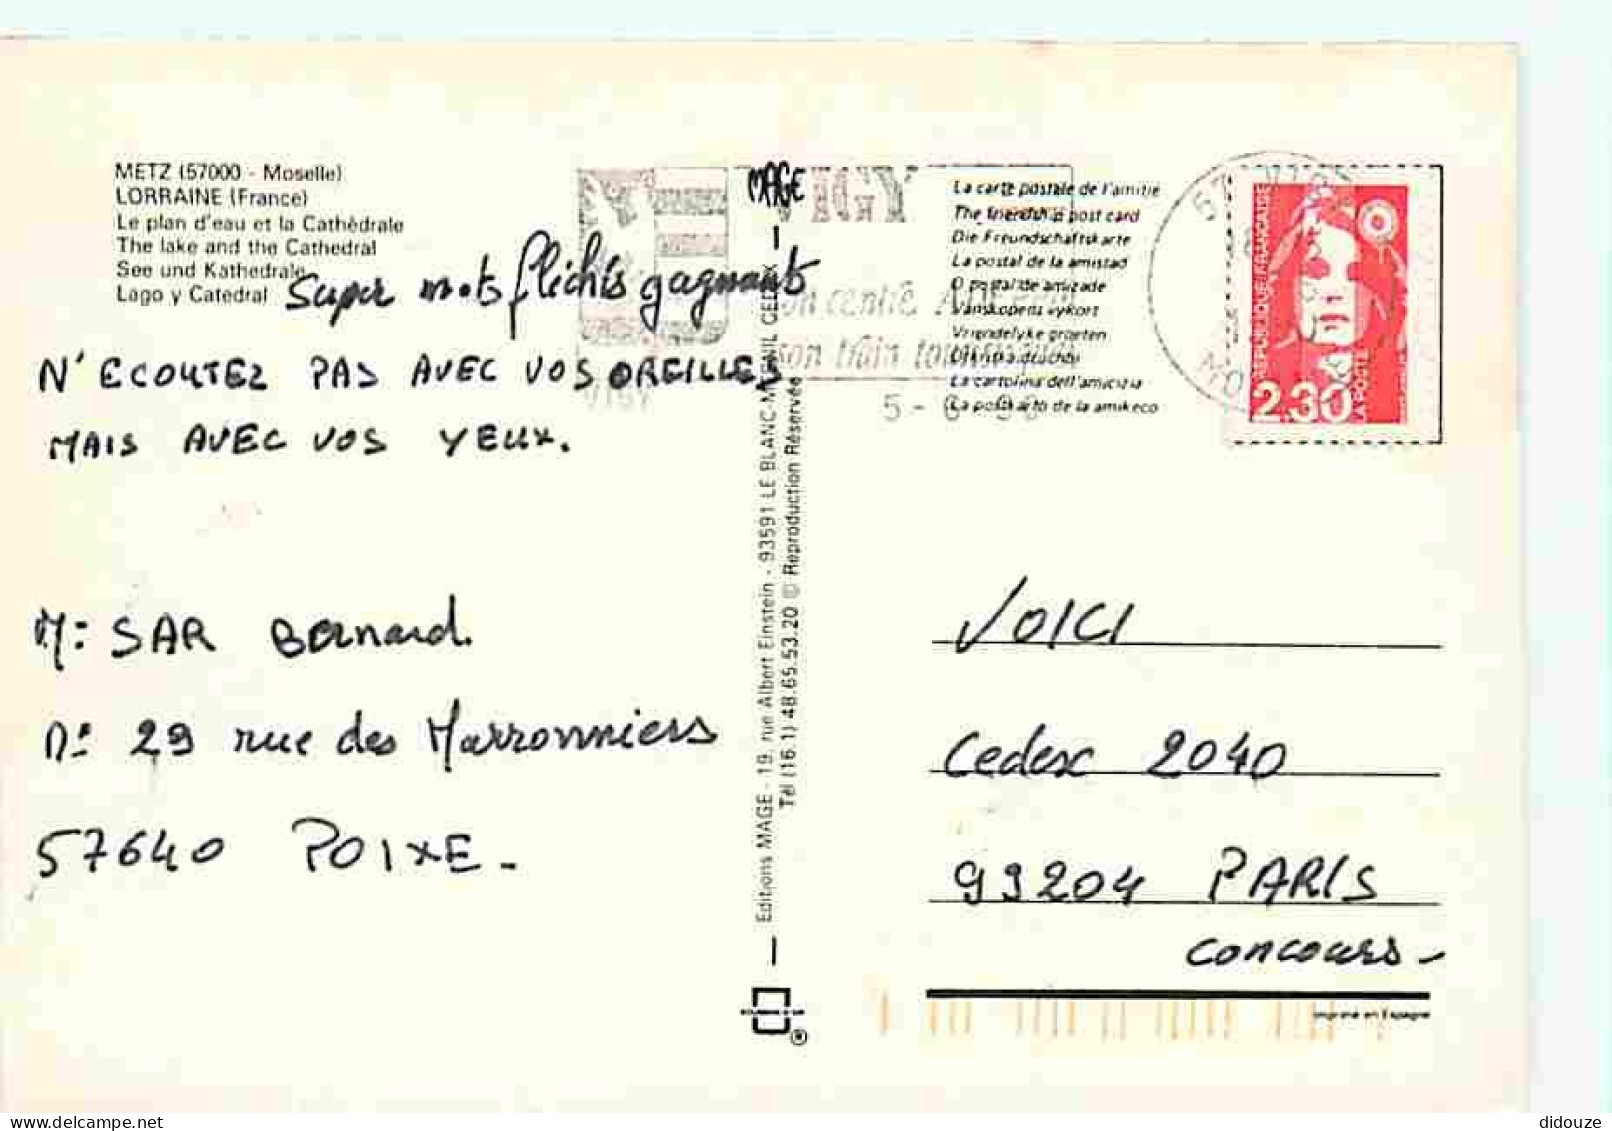 METZ (57000 - Moselle)
LORRAINE (France)
Le plan d'eau et la Cathédrale
The lake and the Cathedral
See und Kathedrale
Lago y Catedral
Super mots fléchés gagnants
N'ECOUTEZ PAS AVEC VOS OREILLES
MAIS AVEC VOS YEUX.
Mr SAR Bernard.
N° 29 rue des Marronniers
57640 POIXE -
MAGE
Editions MAGE - 19, rue Albert Einstein - 93591 LE BLANC-MESNIL CEDEX
Tél (16.1) 48.65.53.20 © Reproduction Réservée
VIGY
son centre
son train touristique
VIGY
5 -
La carte postale de l'amitié
The friendship post card
Die Freundschaftskarte
La postal de la amistad
O postal de amizade
Vanskapens vykort
Vriendelyke groeten
La cartolina dell'amicizia
La postkarto de la amikeco
57 VIGY
MO
REPUBLIQUE FRANÇAISE
2,30
LA POSTE
VOICI
Cedex 2040
99204 PARIS
concours -
Imprimé en Espagne
®
didouze